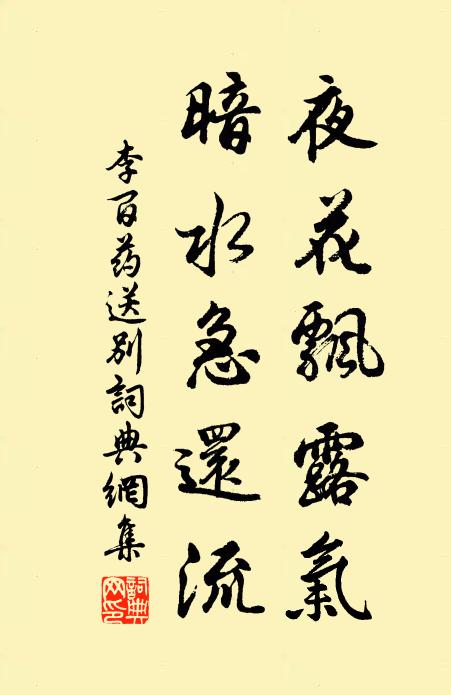 夜花飄露氣
暗水急還流
李百药送别詞典網集
詞典网印